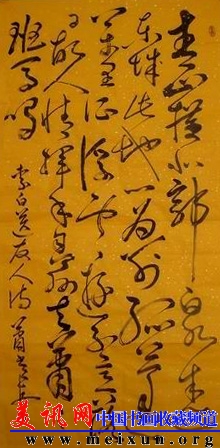 青山横北郭白水
东城此地一为别孤蓬
万里征浮云游子意
日故人情挥手自兹去萧
班马鸣
李白送友人诗
美讯网
中国书画收藏频道
www.meixun.org